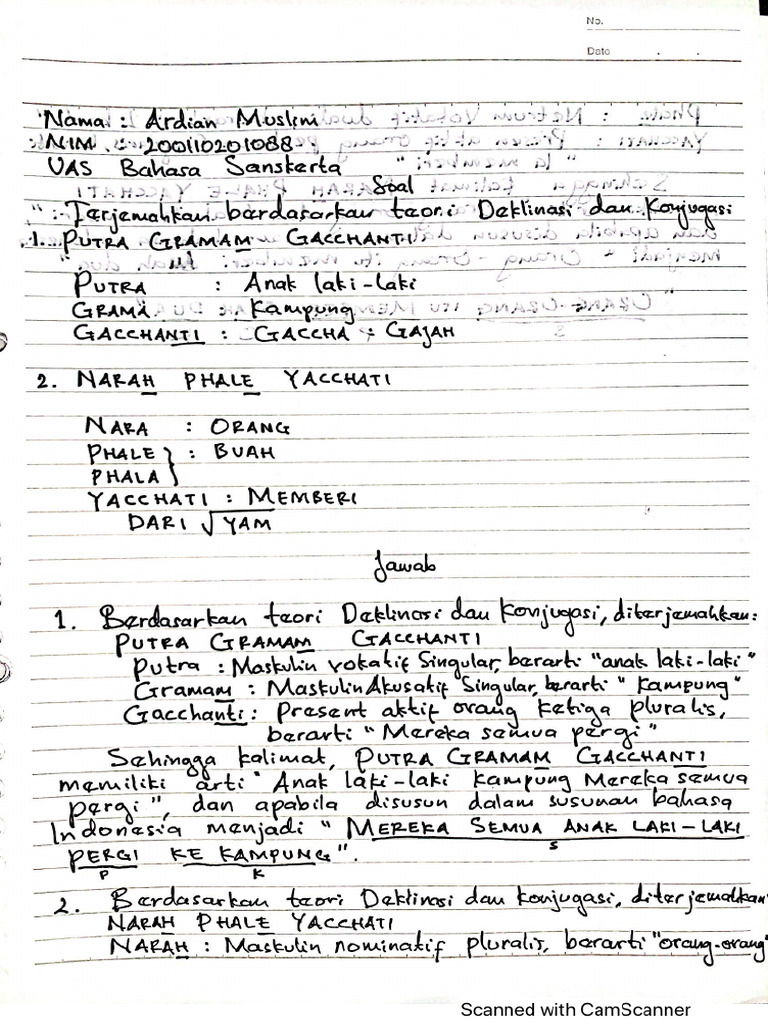 No.
Date
Nama : Ardian Muslim
NIM : 200110201088
UAS Bahasa Sanskerta
Soal
Terjemahkan berdasarkan teori Deklinasi dan Konjugasi
1. PUTRA GRAMAM GACCHANTI
PUTRA : Anak laki-laki
GRAMA : Kampung
GACCHANTI : GACCHA : GAJAH
2. NARAH PHALE YACCHATI
NARA : ORANG
PHALE } : BUAH
PHALA
YACCHATI : MEMBERI
DARI √YAM
Jawab
1. Berdasarkan teori Deklinasi dan Konjugasi, diterjemahkan:
PUTRA GRAMAM GACCHANTI
Putra : Maskulin vokatif Singular, berarti "anak laki-laki"
Gramam : Maskulin Akusatif Singular, berarti "Kampung"
Gacchanti : Present aktif orang ketiga pluralis,
berarti "Mereka semua pergi"
Sehingga kalimat, PUTRA GRAMAM GACCHANTI
memiliki arti "Anak laki-laki kampung Mereka semua
pergi", dan apabila disusun dalam susunan bahasa
Indonesia menjadi "MEREKA SEMUA ANAK LAKI-LAKI
S
PERGI KE KAMPUNG".
P K
2. Berdasarkan teori Deklinasi dan konjugasi, diterjemahkan
NARAH PHALE YACCHATI
NARAH : Maskulin nominatif pluralis, berarti "orang-orang"
Scanned with CamScanner